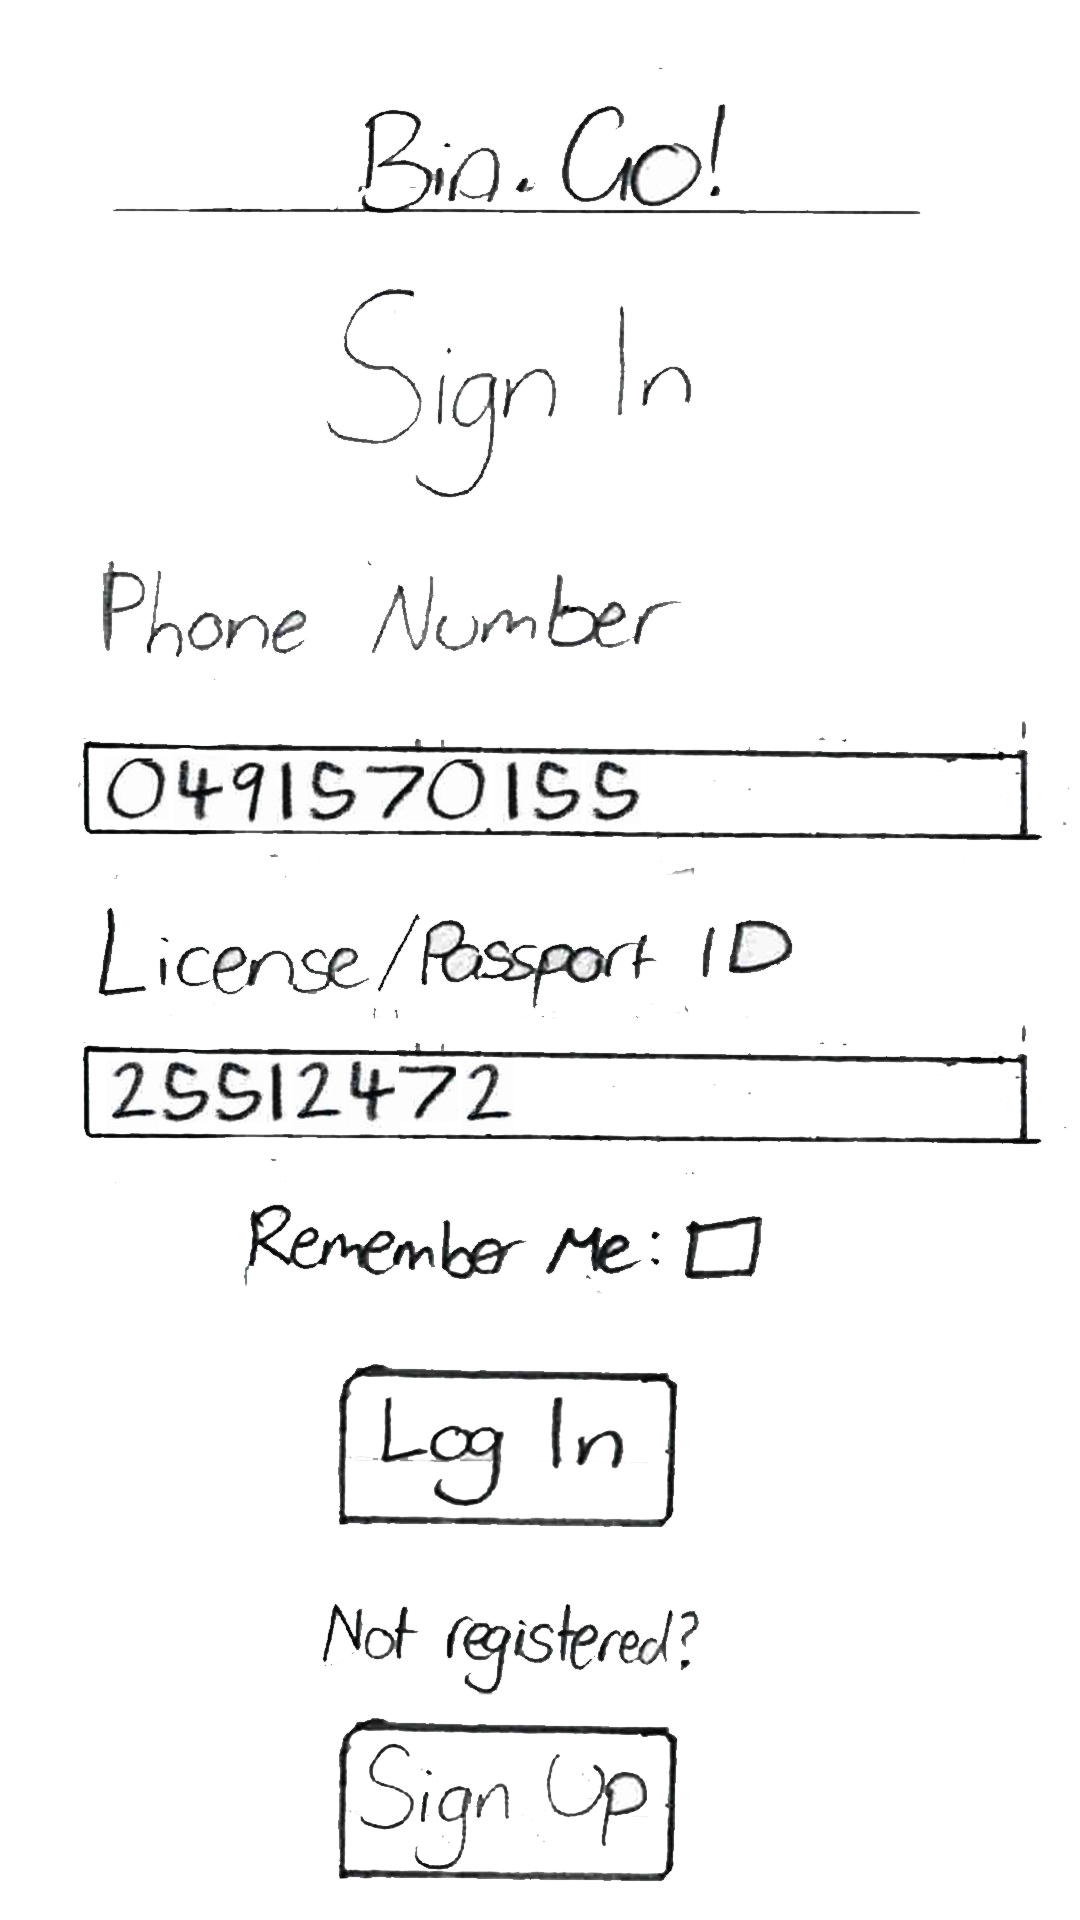 Bin.Go!
Sign In
Phone Number
0491570155
License/Passport ID
25512472
Remember Me:
Log In
Not registered?
Sign Up